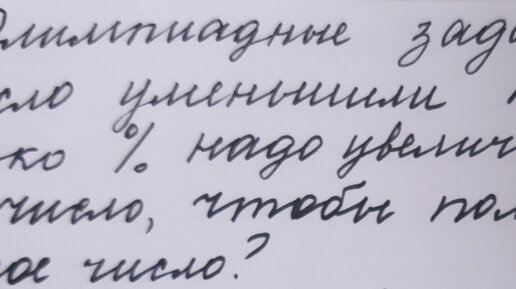 лимпиадные зада
сло уменьшили
ко % надо увелич
число, чтобы пол
ое число?